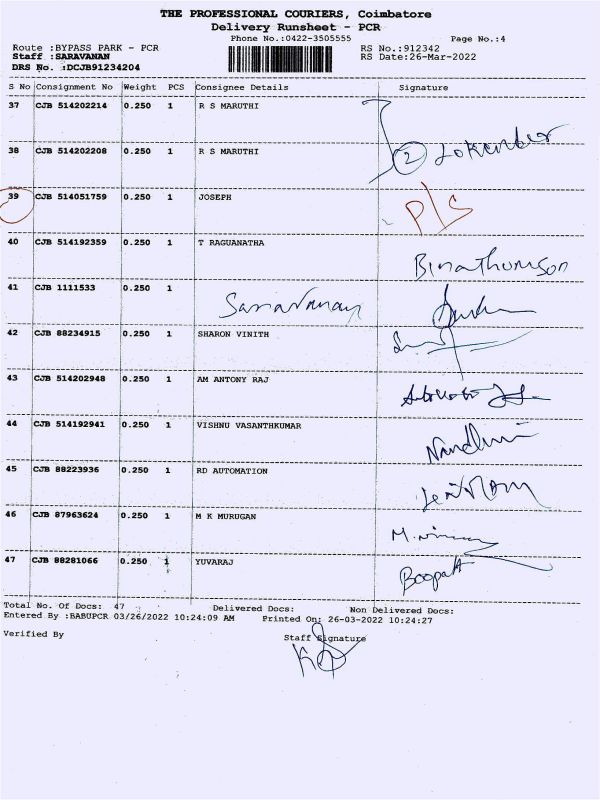 THE PROFESSIONAL COURIERS, Coimbatore
Delivery Runsheet - PCR
Phone No.:0422-3505555
Page No.:4
Route :BYPASS PARK - PCR
RS No.:912342
Staff :SARAVANAN
RS Date:26-Mar-2022
DRS No. :DCJB91234204
S No Consignment No Weight PCS Consignee Details Signature
37 CJB 514202214 0.250 1 R S MARUTHI
38 CJB 514202208 0.250 1 R S MARUTHI 2
39 CJB 514051759 0.250 1 JOSEPH P/S
40 CJB 514192359 0.250 1 T RAGUANATHA Binathomson
41 CJB 1111533 0.250 1 Saravanan
42 CJB 88234915 0.250 1 SHARON VINITH
43 CJB 514202948 0.250 1 AM ANTONY RAJ
44 CJB 514192941 0.250 1 VISHNU VASANTHKUMAR Nandhini
45 CJB 88223936 0.250 1 RD AUTOMATION
46 CJB 87963624 0.250 1 M K MURUGAN
47 CJB 88281066 0.250 1 YUVARAJ
Total No. Of Docs: 47 Delivered Docs: Non Delivered Docs:
Entered By :BABUPCR 03/26/2022 10:24:09 AM Printed On: 26-03-2022 10:24:27
Verified By Staff Signature